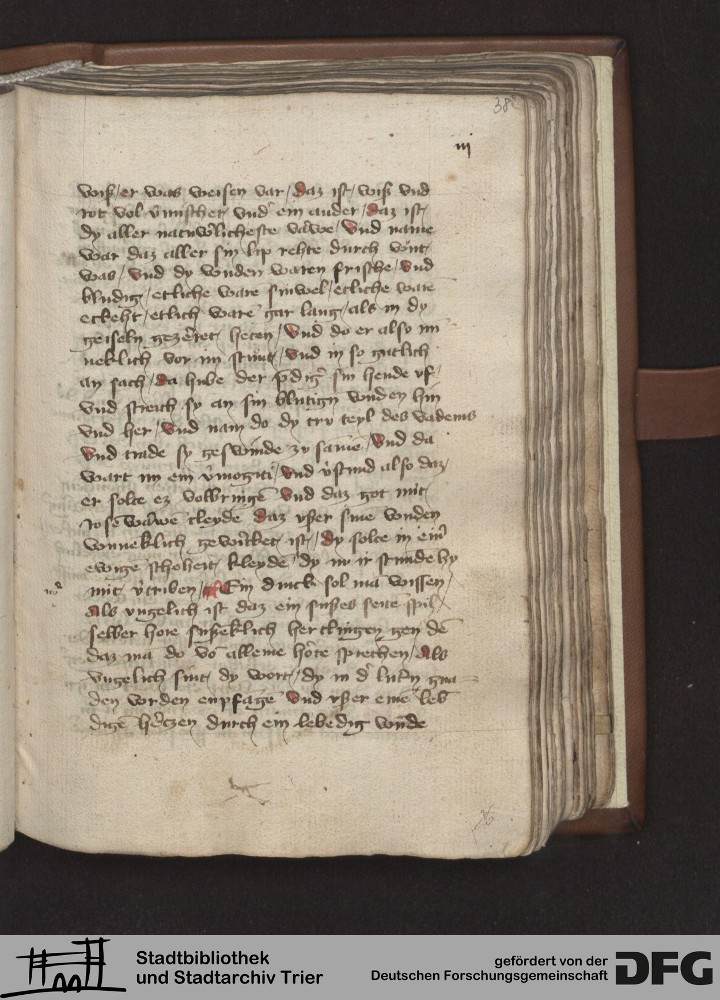 38
iij
wiß / er was weisen var / daz ist / wiß vnd
rot vol v̄mischet vnd ein ander / daz ist /
dy aller naturlicheste vawe / Vnd name
war daz aller sin lip rehte durch wnt
was / Vnd dy wnden waren frische / Vnd
bludig / etliche ware sinwel / etliche ware
eckeht / etlich ware gar lang / als in dy
geiseln gezerret heten / Vnd do er also mi
neklich vor im stunt / Vnd in so gutlich
an sach / da hube der p̄diger sin hende vf /
vnd streich sy an sin blutign wnden hin
vnd her / Vnd nam do dy try teyl des vadems
Vnd trade sy geswinde zv same / Vnd da
wart im ein v̄mogiti / Vnd v̄stund also daz /
er solte ez volbringe Vnd daz got mit
rose vawe cleyde daz vßer sine wnden
wnneklich gewurket ist / dy solte in eine
ewige schoheit kleyde dy im ir stunde hy
mit v̄triben / Ein dinck sol ma wissen /
Als vngelich ist daz ein sußes seite spil /
selber hore sußeklich herclingen gen de
daz ma do vo alleine hore sprechen / Als
vngelich sint dy wort / dy in d lutern gna=
den worden enpfage Vnd vßer eine leb
dige herczen durch ein lebedig wnde
Stadtbibliothek
und Stadtarchiv Trier
gefördert von der
Deutschen Forschungsgemeinschaft
DFG